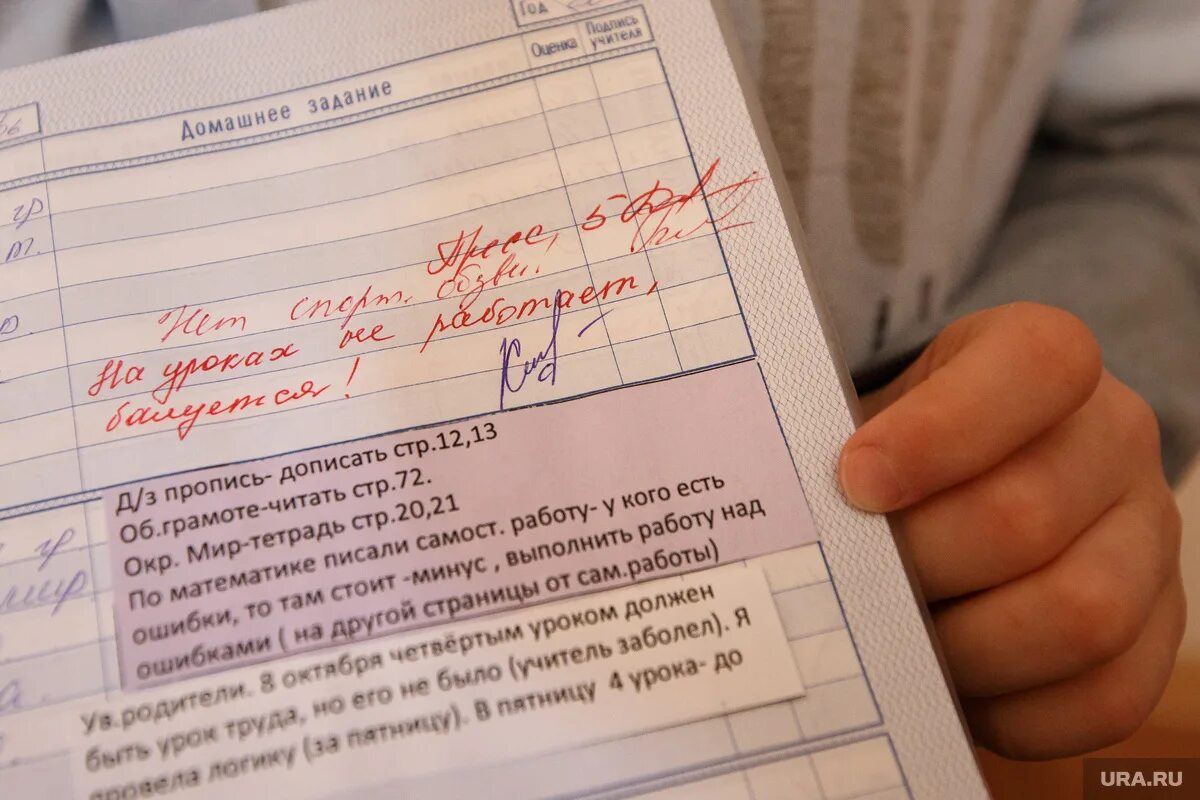 Год
Домашнее задание
Оценка
Подпись
учителя
гр
т.
Пресс, 5
Нет спорт. обуви.
На уроках не работает,
балуется!
Д/з пропись- дописать стр.12,13
Об.грамоте-читать стр.72.
Окр. Мир-тетрадь стр.20,21
По математике писали самост. работу- у кого есть
ошибки, то там стоит -минус , выполнить работу над
ошибками ( на другой страницы от сам.работы)
гр
мир
Ув.родители. 8 октября четвёртым уроком должен
быть урок труда, но его не было (учитель заболел). Я
провела логику (за пятницу). В пятницу 4 урока- до
URA.RU